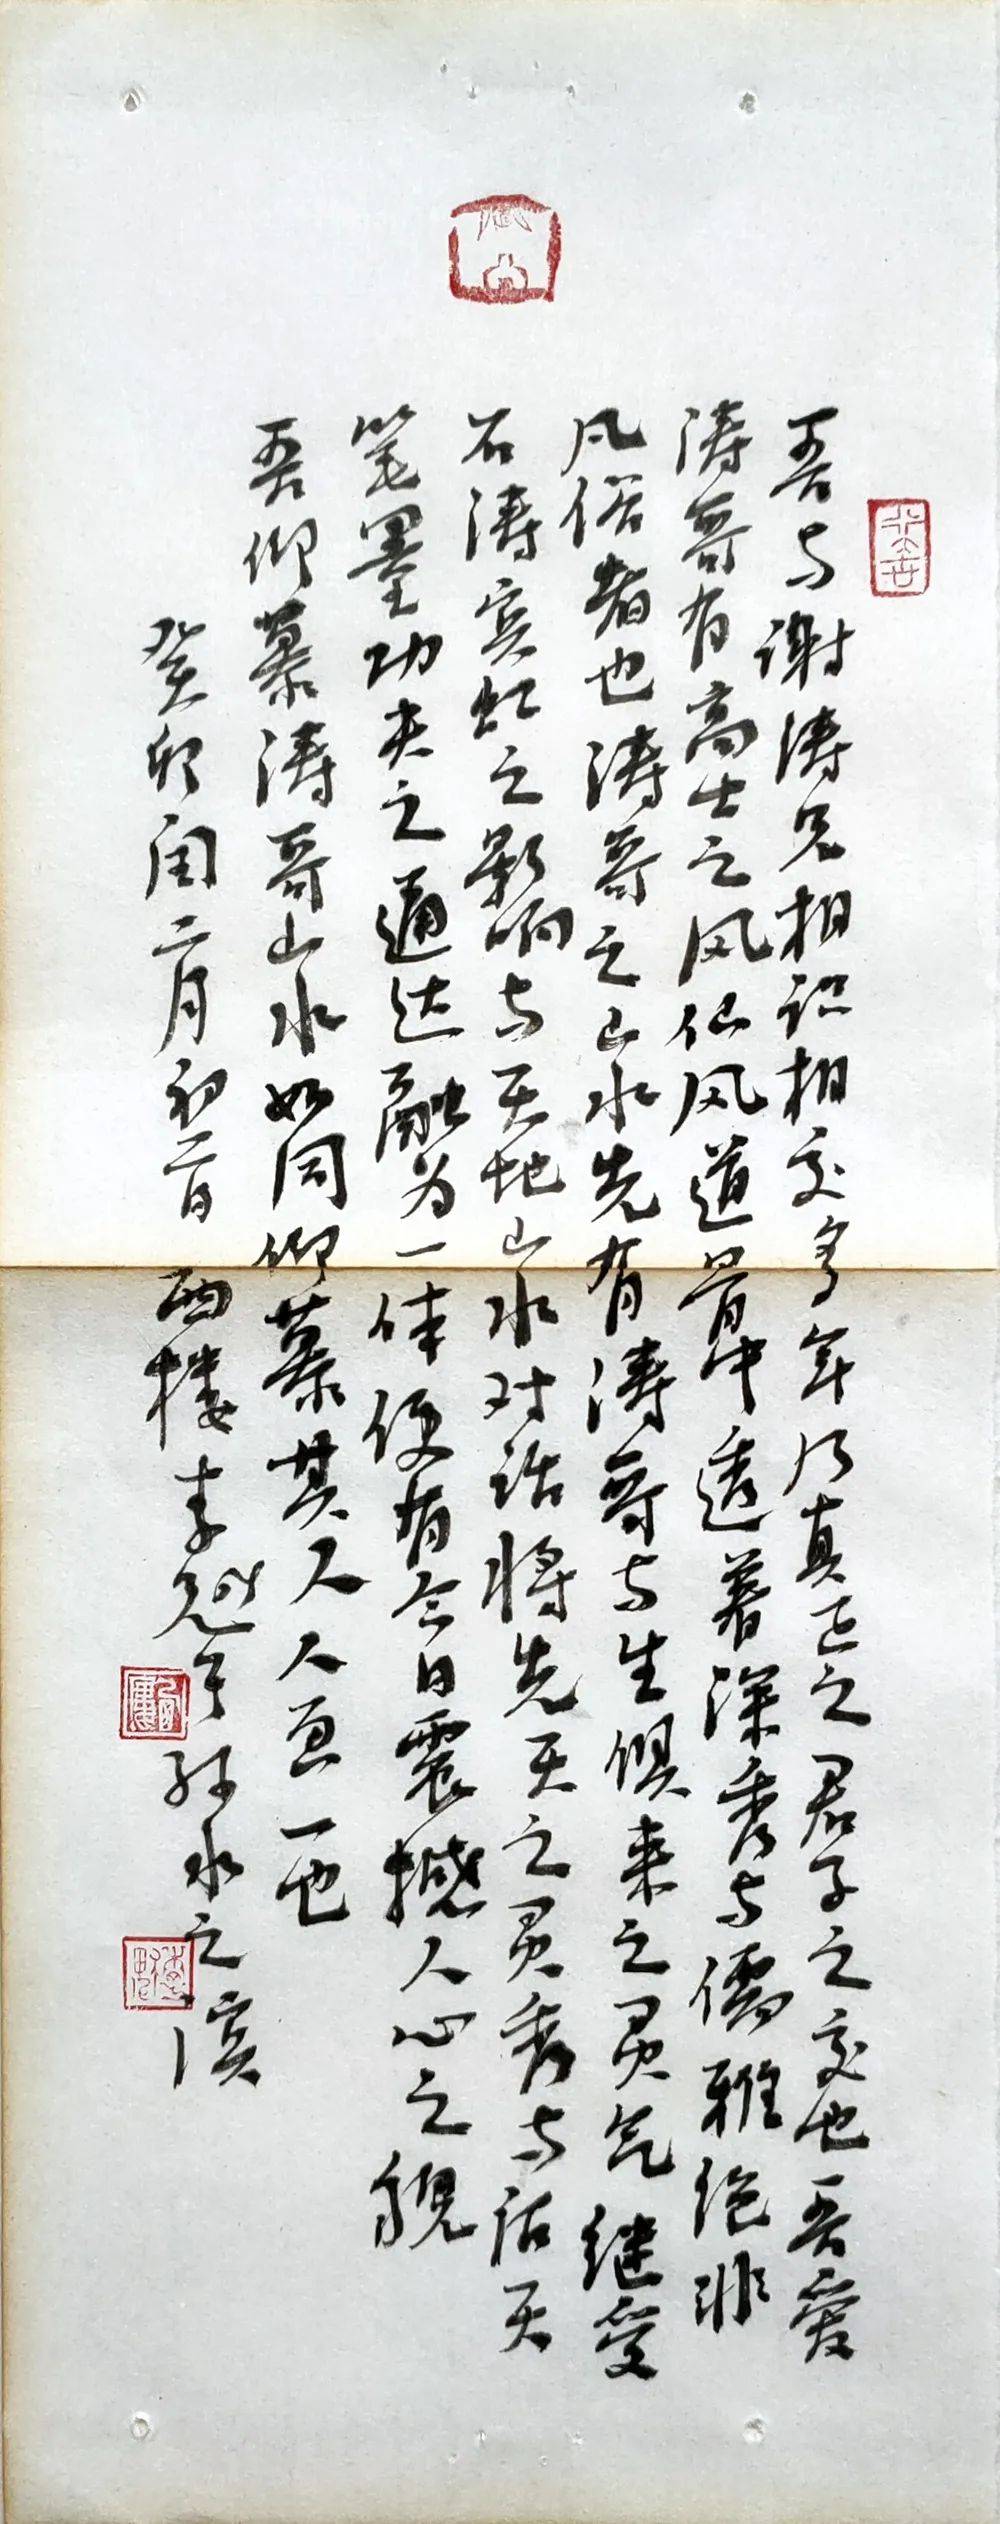 吾与谢涛兄相识相交多年乃真正之君子之交也吾爱
涛哥有高士之风仙风道骨中透着深秀与儒雅绝非
凡俗者也涛哥之山水先有涛哥与生俱来之灵气继受
石涛宾虹之影响与天地山水对话将先天之灵秀与后天
笔墨功夫之通达融为一体便有今日震撼人心之貌
吾仰慕涛哥山水如同仰慕其人人画一也
癸卯闰二月初二日 西楼李 于 水之滨